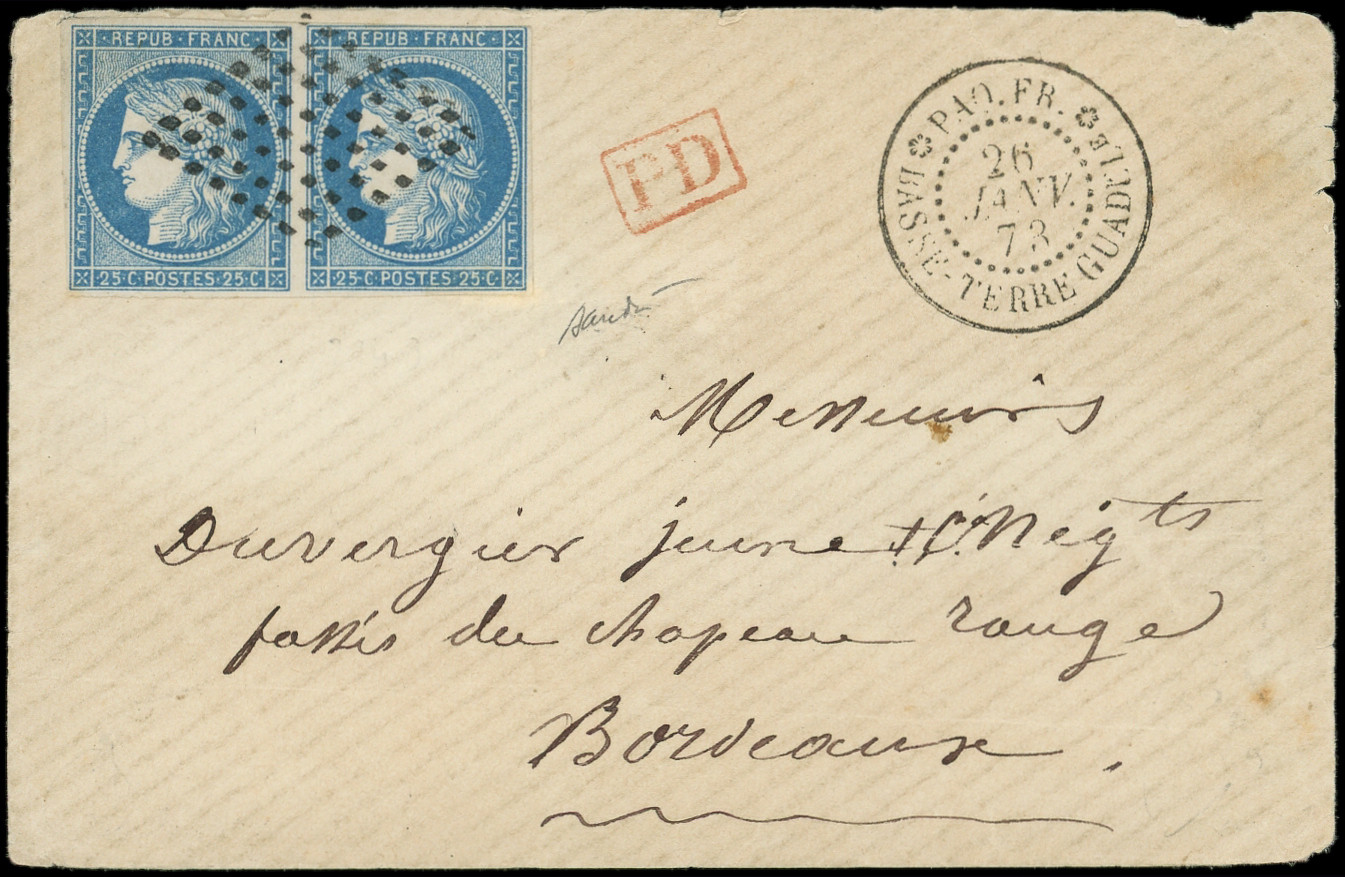 REPUB·FRANC REPUB·FRANC
25·C·POSTES·25·C 25·C·POSTES·25·C
PD
PAQ. FR.
26
JANV.
73
BASSE-TERRE GUADELLE
Messieurs
Duvergier jeune & Cie Négts
fossés du chapeau rouge
Bordeaux.